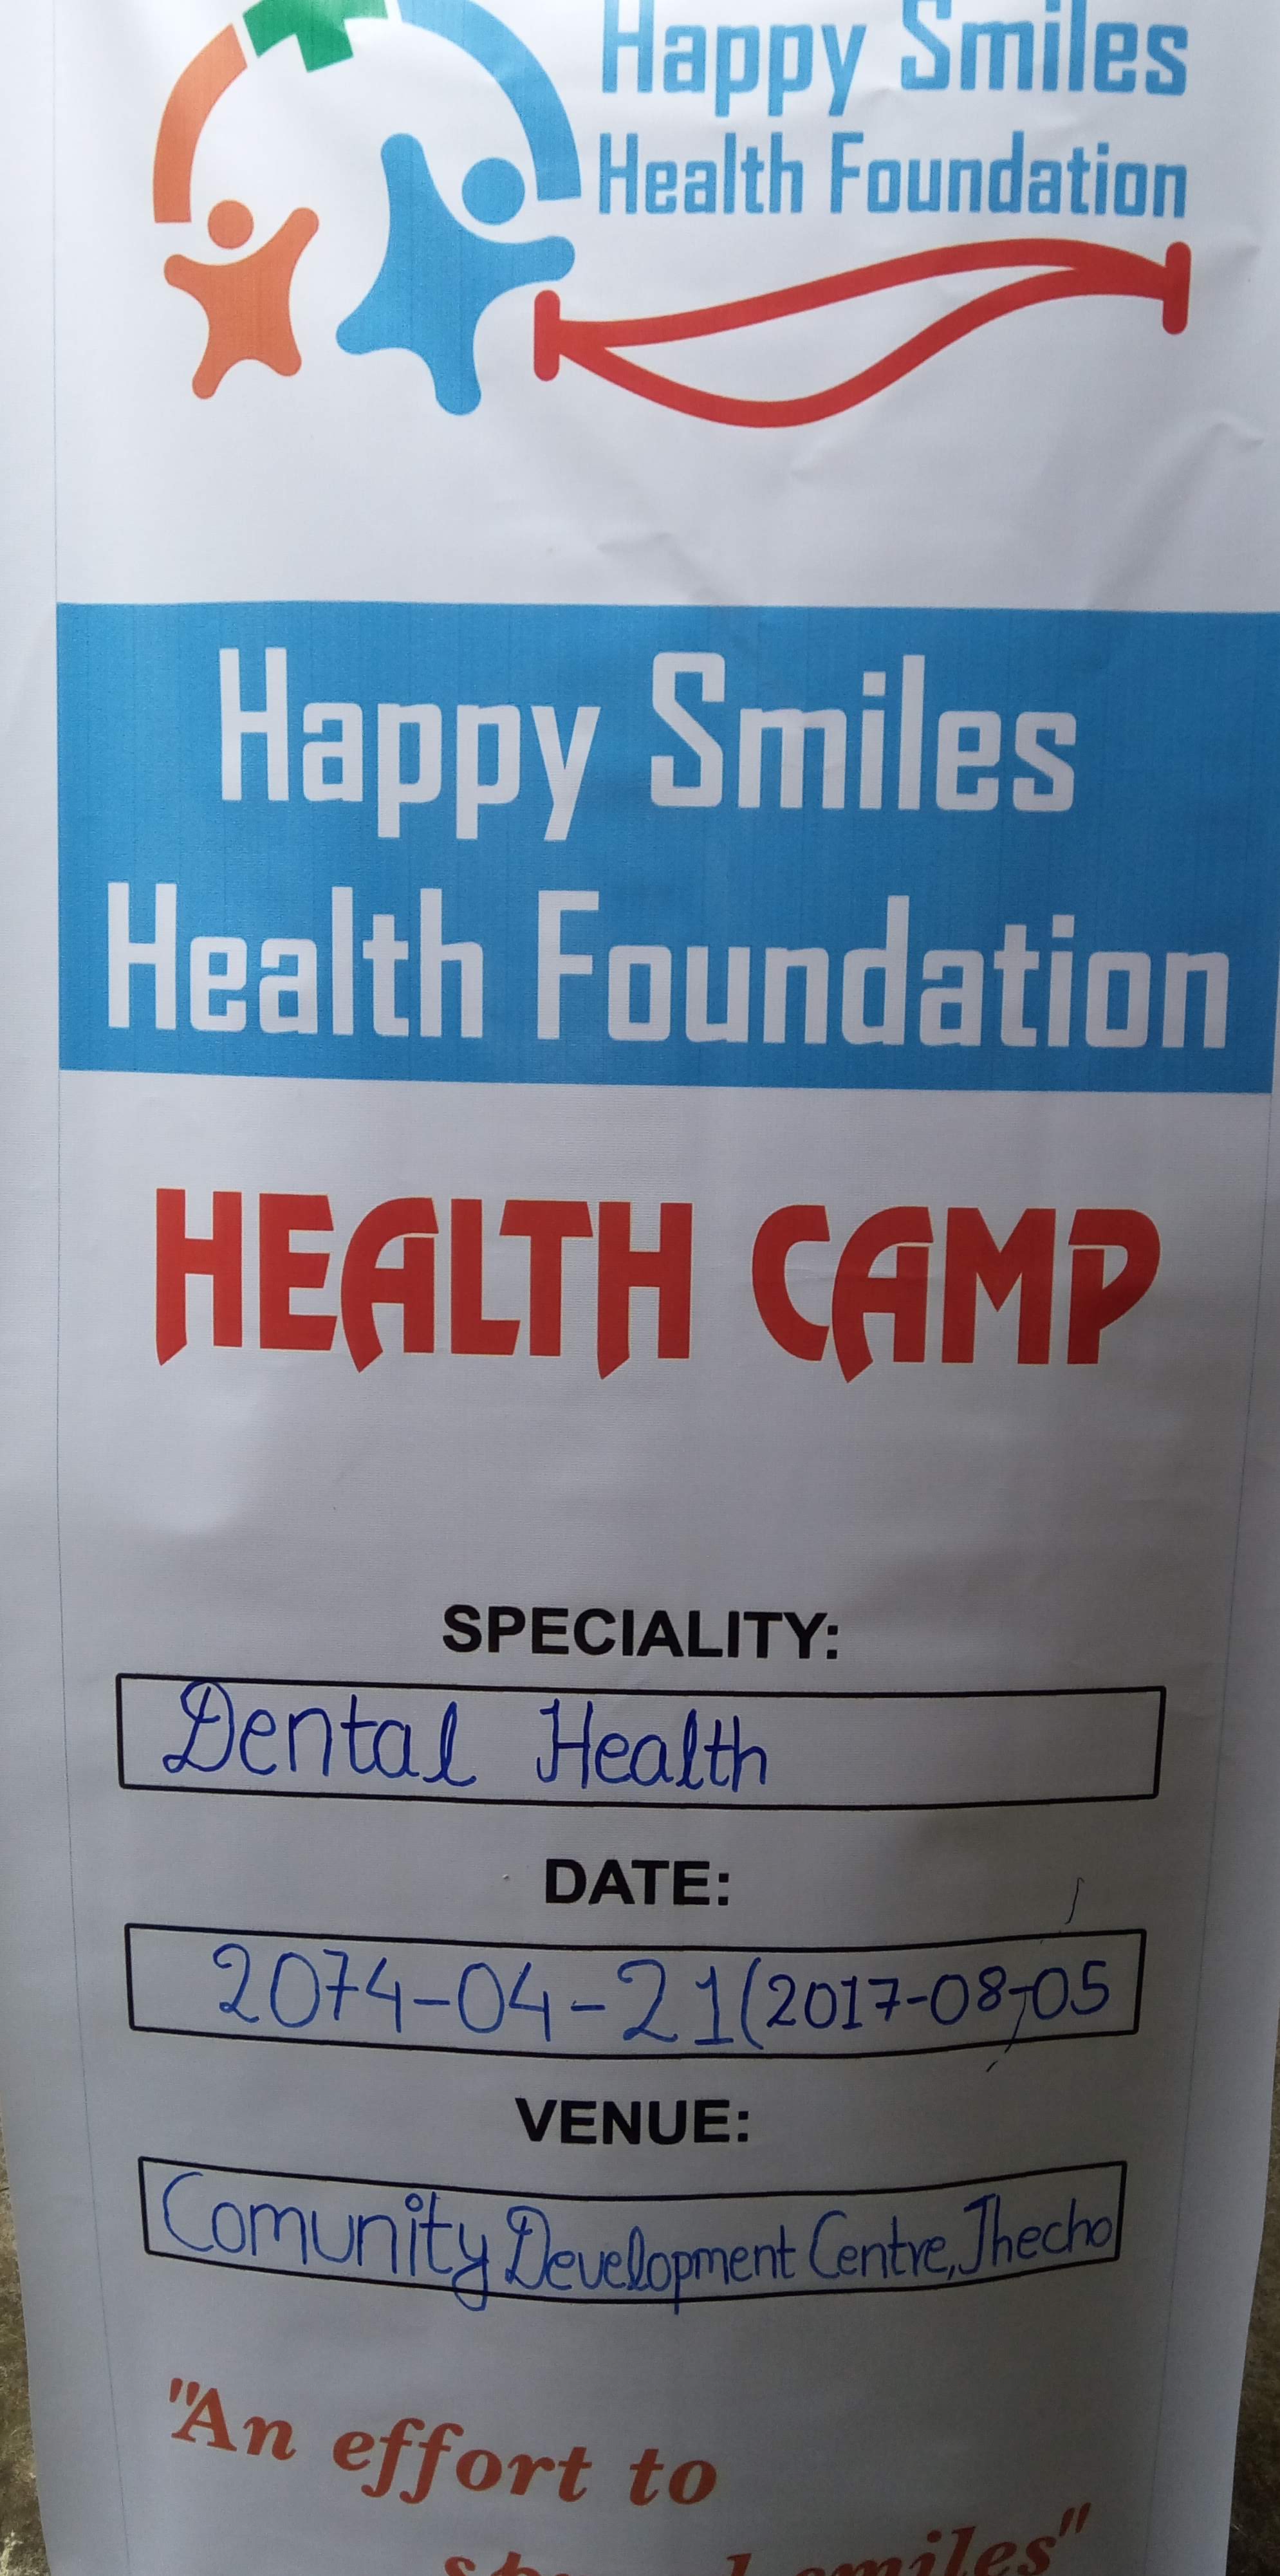 Happy Smiles
Health Foundation
Happy Smiles
Health Foundation
HEALTH CAMP
SPECIALITY:
Dental Health
DATE:
2074-04-21(2017-08-05
VENUE:
Comunity Development Centre, Jhecho
"An effort to
smiles"